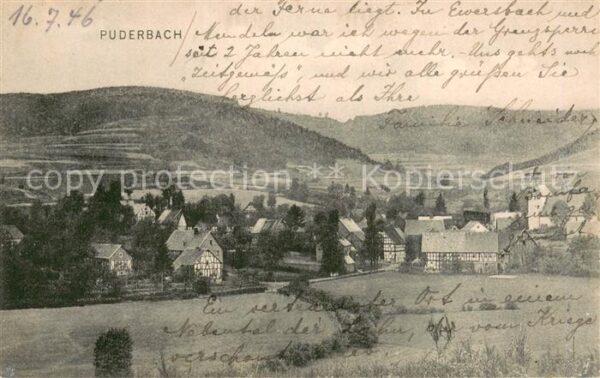 16.7.46
PUDERBACH
der Ferne liegt. In Ewersbach und
Mandeln war ich wegen der Grenzsperre
seit 2 Jahren nicht mehr. - Uns gehts noch
"zeitgemäß", und wir alle grüßen Sie
herzlichst als Ihre
Familie Schneider.
copyright by **ansichtskarten-center**
Ein versteckter Ort in einem
Nebental der Lahn, der vom Kriege
verschont blieb.